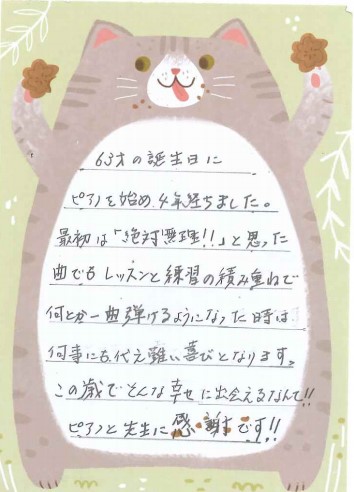 63才の誕生日に
ピアノを始め、4年経ちました。
最初は「絶対無理!!」と思った
曲でもレッスンと練習の積み重ねで
何とか一曲弾けるようになった時は
何事にも代え難い喜びとなります。
この歳でそんな幸せに出会えるなんて!!
ピアノと先生に感謝です!!